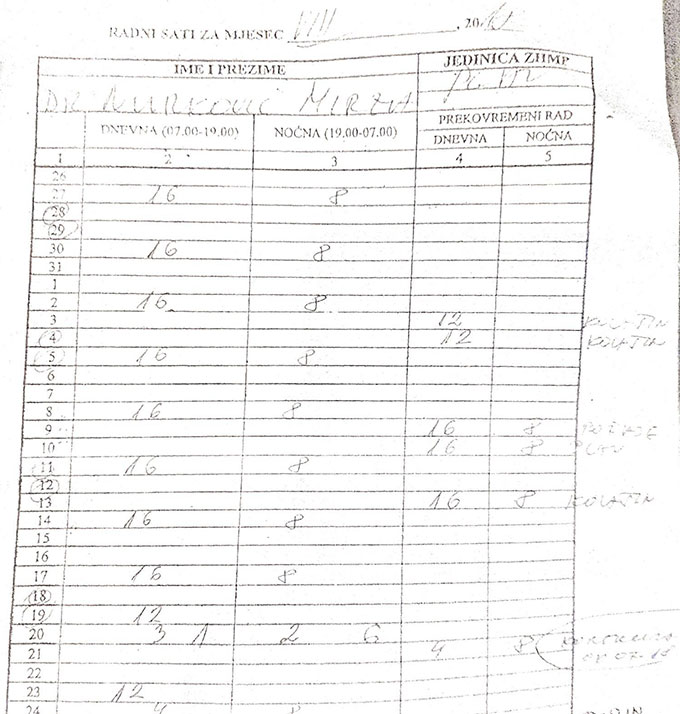 RADNI SATI ZA MJESEC VIII , 20
IME I PREZIME JEDINICA ZHMP
DR NURKOVIĆ MIRZA
PREKOVREMENI RAD
DNEVNA (07.00-19.00) NOĆNA (19.00-07.00) DNEVNA NOĆNA
1 2 3 4 5
26
27 16 8
28
29
30 16 8
31
1
2 16 8
3 12 KOLAŠIN
4 12 KOLAŠIN
5 16 8
6
7
8 16 8
9 16 8
10 16 8 PLAV
11 16 8
12
13 16 8 KOLAŠIN
14 16 8
15
16
17 16 8
18
19 12
20 3 1 2 6
21 4 8
22
23 12
24 4 8